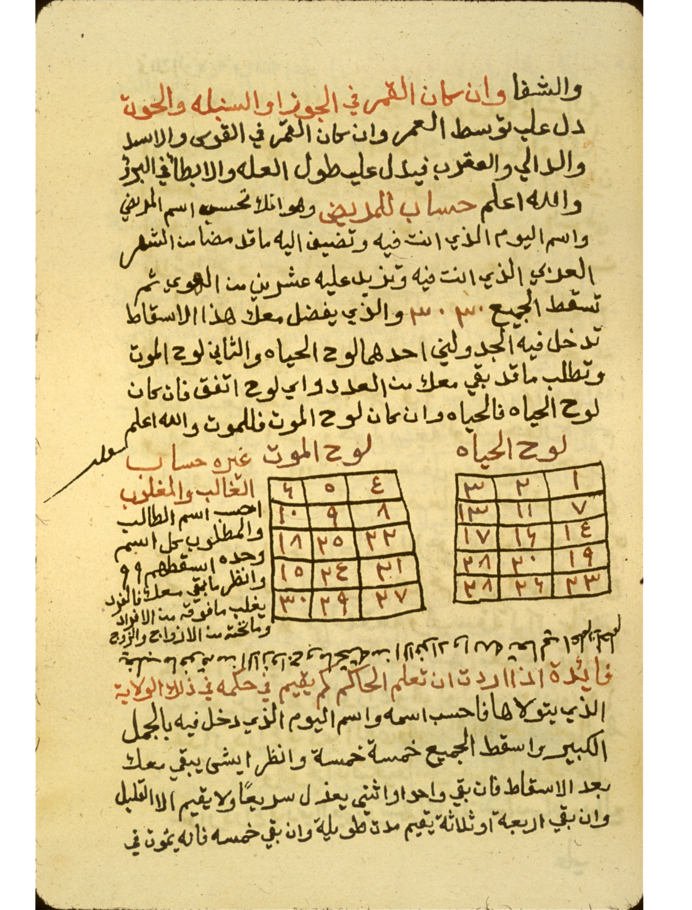 والشفا وان كان القمر في الجوزا والسنبله والحوت
دل علي توسط العمر وان كان القمر في القوس والاسد
والدالي والعقرب فيدل علي طول العله والابطا في البرؤ
والله اعلم حساب للمريض وهو انك تحسب اسم المريض
واسم اليوم الذي انت فيه وتضيف اليه ما قد مضا من الشهر
العربي الذي انت فيه وتزيد عليه عشرين من الهوي ثم
تسقط الجميع ٣٠ ٣٠ والذي يفضل معك هذا الاسقاط
تدخل فيه الجدولين احدهما لوح الحياه والثاني لوح الموت
وتطلب ما قد بقي معك من العدد واي لوح اتفق فان كان
لوح الحياه فالحياه وان كان لوح الموت فللموت والله اعلم
لوح الحياه
١ ٢ ٣
٧ ١١ ١٣
١٤ ١٦ ١٧
١٩ ٢٠ ٢٨
٢٣ ٢٦ ٢٨
لوح الموت
٤ ٥ ٦
٨ ٩ ١٠
٢٢ ٢٥ ١٨
٢١ ٢٤ ١٥
٢٧ ٢٩ ٣٠
غيره حساب
الغالب والمغلوب
احسب اسم الطالب
والمطلوب كل اسم
وحده اسقطهم ٩٩
وانظر ما بقي معك فالفرد
يغلب ما فوقه من الافراد
وما تحته من الازواج والزوج
فايدة اذا اردت ان تعلم الحاكم كم يقيم في حكمه في ذلك الولاية
الذي يتولاها فاحسب اسمه واسم اليوم الذي دخل فيه بالجمل
الكبير واسقط الجميع خمسة خمسة وانظر ايشي يبقي معك
بعد الاسقاط فان بقي واحد او اثنين يعذل سريعًا ولا يقيم الا القليل
وان بقي اربعة او ثلاثة يقيم مدت طويلة وان بقي خمسه فانه يموت في